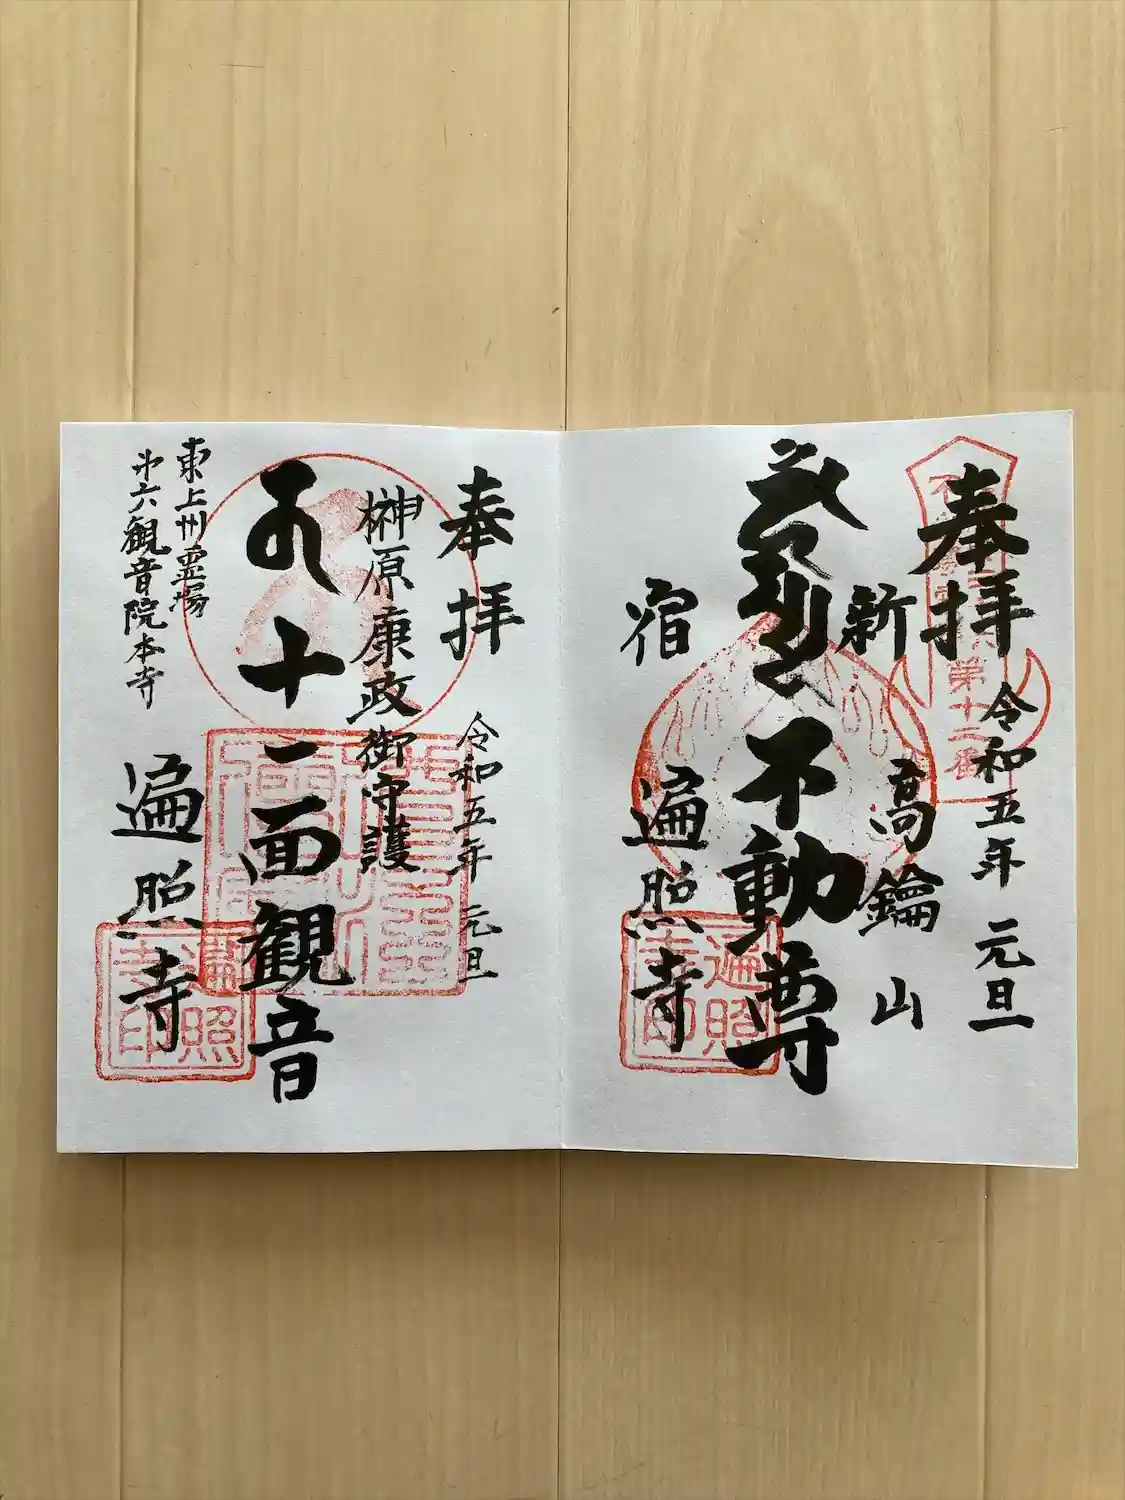 奉拝
令和五年 元旦
新 高鑰山
不動尊
宿 遍照寺
第十二番
遍照寺印
奉拝
令和五年 元旦
榊原康政御守護
十一面観音
東上州霊場
第六観音院本寺
遍照寺
遍照寺印